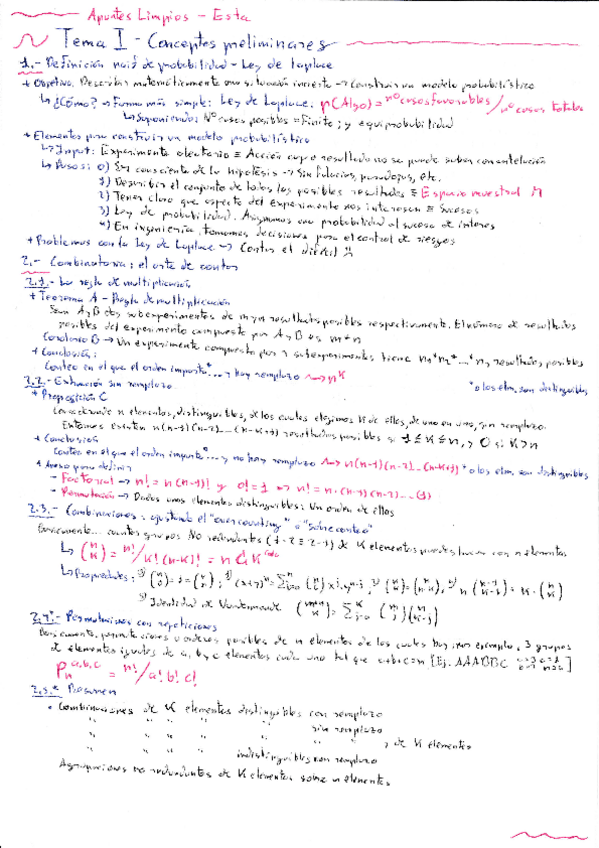 Apuntes Limpios - Esta
Tema I - Conceptos preliminares
1.- Definición naïf de probabilidad - Ley de Laplace
+ Objetivo. Describir matemáticamente una situación incierta → Construir un modelo probabilístico
↳ ¿Cómo? → Forma más simple: Ley de Laplace: p(Algo) = nº casos favorables / nº casos totales
↳ Suponiendo: Nº casos posibles = Finito; y equiprobabilidad
+ Elementos para construir un modelo probabilístico
↳ Input: Experimento aleatorio ≡ Acción cuyo resultado no se puede saber con antelación
↳ Pasos: 0) Ser consciente de la hipótesis → Sin falacias, paradojas, etc.
1) Describir el conjunto de todos los posibles resultados ≡ Espacio muestral
2) Tener claro que aspecto del experimento nos interesan ≡ Sucesos
3) Ley de probabilidad. Asignamos una probabilidad al suceso de interés
4) En ingeniería, tomamos decisiones para el control de riesgos
+ Problemas con la Ley de Laplace → Contar es difícil
2.- Combinatoria: el arte de contar
2.1.- La regla de multiplicación
+ Teorema A - Regla de multiplicación
Sean A y B dos subexperimentos de m y n resultados posibles respectivamente. El número de resultados
posibles del experimento compuesto por A y B es m*n
Corolario B → Un experimento compuesto por r subexperimentos tiene n₁*n₂*...*nᵣ resultados posibles
+ Conclusión:
Conteo en el que el orden importa* ... y hay remplazo → n^k
*o los elem. son distinguibles
2.2.- Extracción sin remplazo
+ Proposición C
Considerando n elementos, distinguibles, de los cuales elegimos K de ellos, de uno en uno, sin remplazo.
Entonces existen n(n-1)(n-2)...(n-k+1) resultados posibles si 1 ≤ K ≤ n, y 0 si K > n
+ Conclusión
Conteo en el que el orden importa* ... y no hay remplazo → n(n-1)(n-2)...(n-k+1) *o los elem. son distinguibles
+ Avenso para definir
- Factorial → n! = n(n-1)! y 0! = 1 → n! = n·(n-1)(n-2)...(1)
- Permutación → Dados unos elementos distinguibles: Un orden de ellos
2.3.- Combinaciones: ajustando el "overcounting" o "sobreconteo"
cuantos grupos No redundantes (1-2 ≡ 2-1) de K elementos puedes hacer con n elementos
↳ (n k) = n! / k!(n-k)!
↳ Propiedades:
5) Identidad de Vandermonde
2.4.- Permutaciones con repeticiones
permutaciones u ordenes posibles de n elementos de los cuales hay, por ejemplo, 3 grupos
de elementos iguales de a, b y c elementos cada uno tal que a+b+c=n [Ej. AAABBC
P_n^{a,b,c} = n! / a! b! c!
2.5.- Resumen
• Combinaciones de K elementos distinguibles con remplazo
" " " " sin remplazo
" " " " , de K elementos
" " " indistinguibles con remplazo
Agrupaciones no redundantes de K elementos sobre n elementos